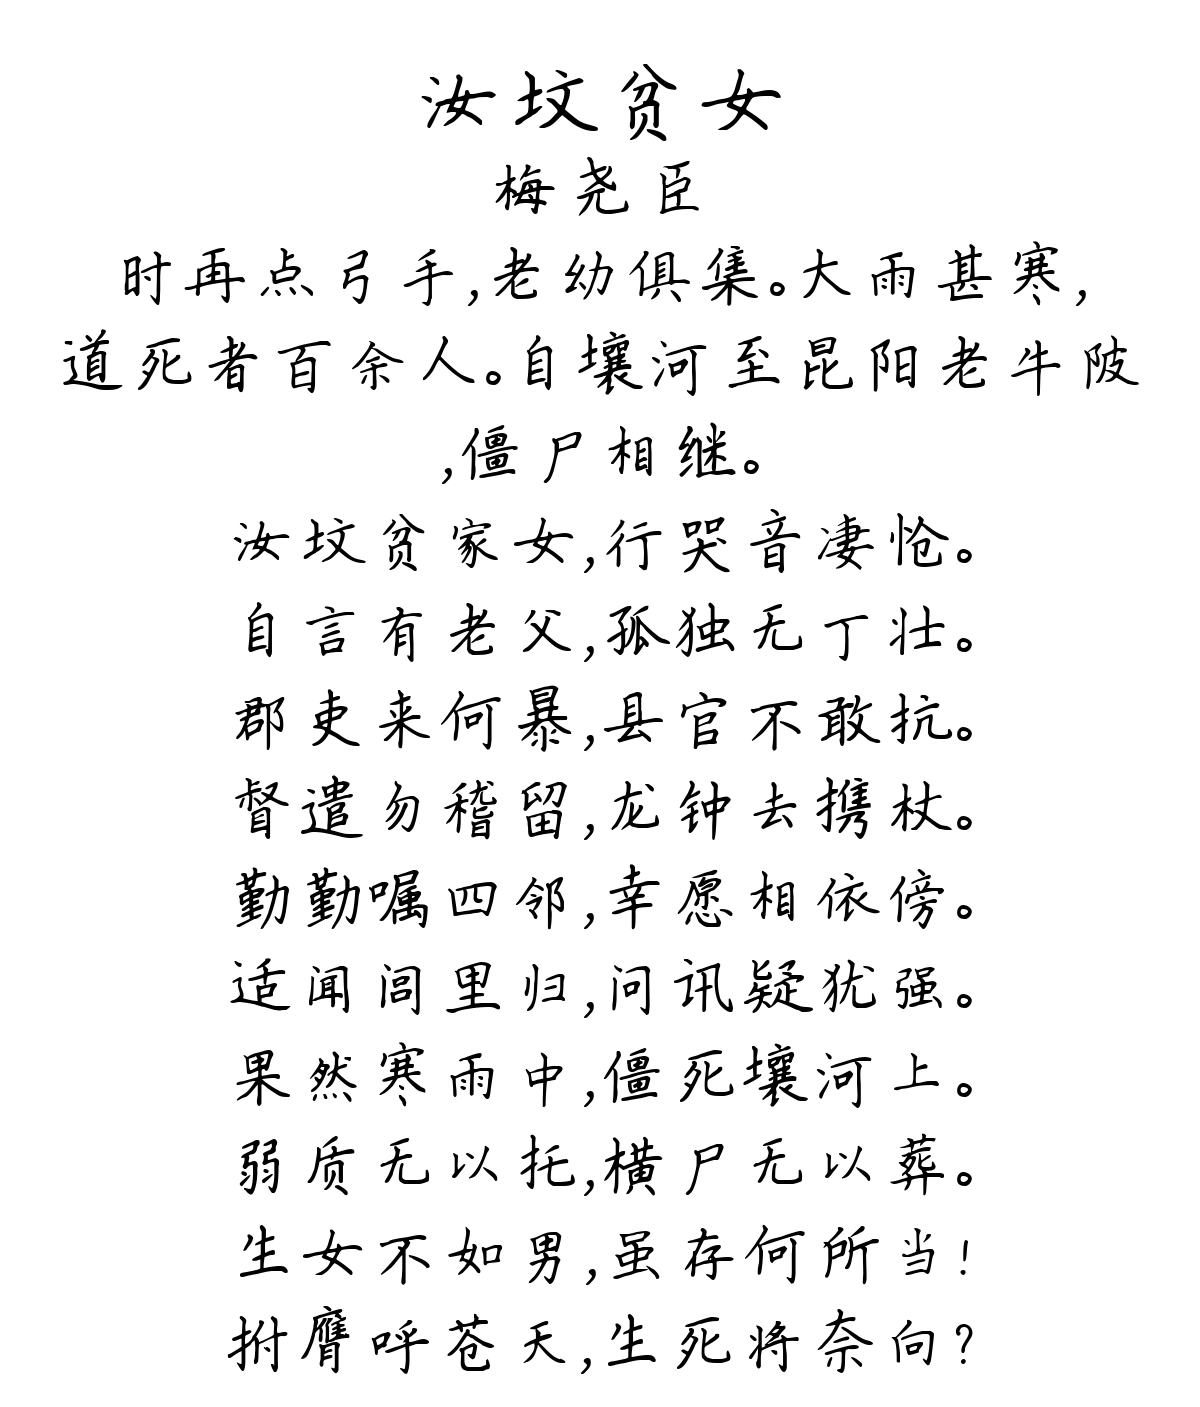 汝坟贫女
梅尧臣
时再点弓手,老幼俱集。大雨甚寒,
道死者百余人。自壤河至昆阳老牛陂
,僵尸相继。
汝坟贫家女,行哭音凄怆。
自言有老父,孤独无丁壮。
郡吏来何暴,县官不敢抗。
督遣勿稽留,龙钟去携杖。
勤勤嘱四邻,幸愿相依傍。
适闻闾里归,问讯疑犹强。
果然寒雨中,僵死壤河上。
弱质无以托,横尸无以葬。
生女不如男,虽存何所当!
拊膺呼苍天,生死将奈向?